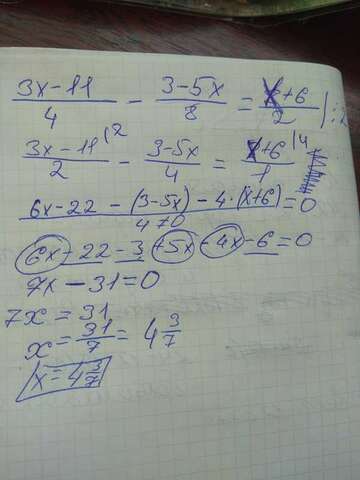 (3x-11)/4 - (3-5x)/8 = (x+6)/2 |:2
(3x-11)/2 |2 - (3-5x)/4 = (x+6)/1 |4
(6x-22 - (3-5x) - 4·(x+6))/(4≠0) = 0
6x - 22 - 3 + 5x - 4x - 6 = 0
7x - 31 = 0
7x = 31
x = 31/7 = 4 3/7
x = 4 3/7